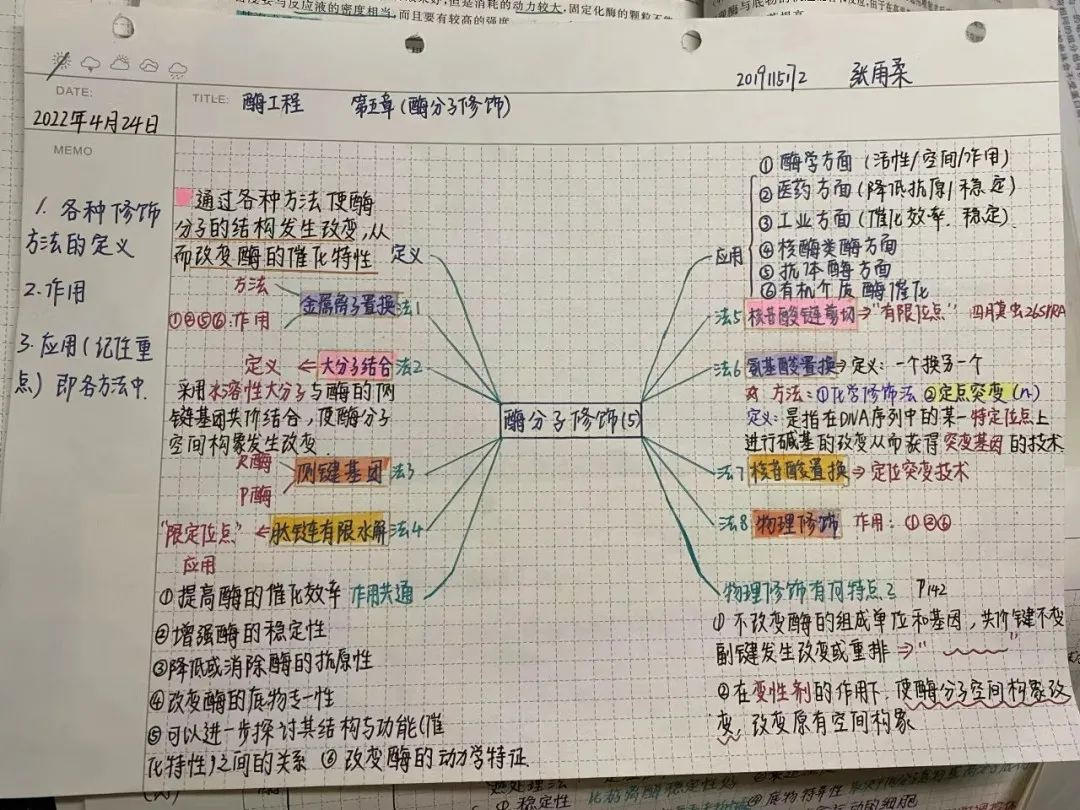 2019115172 张雨柔
DATE:
2022年4月24日
TITLE: 酶工程 第五章(酶分子修饰)
MEMO
1. 各种修饰
方法的定义
2. 作用
3. 应用(纪性重
点) 即各方法中.
通过各种方法使酶
分子的结构发生改变,从
而改变酶的催化特性 定义
方法
金属离子置换 法1
①④⑤⑥:作用
定义 ← 大分子结合 法2
采用水溶性大分子与酶的侧
键基团共价结合,使酶分子
空间构象发生改变
侧键基团 法3
P酶
"限定位点" ← 肽链有限水解 法4
应用
①提高酶的催化效率 作用共通
②增强酶的稳定性
③降低或消除酶的抗原性
④改变酶的底物专一性
⑤可以进一步探讨其结构与功能(催
化特性)之间的关系 ⑥ 改变酶的动力学特征
酶分子修饰(5)
应用
① 酶学方面 (活性/空间/作用)
② 医药方面(降低抗原/稳定)
③ 工业方面(催化效率.稳定).
④核酶类酶方面
⑤抗体酶方面
⑥有机介质酶催化
法5 核苷酸链剪切 ⇒ "有限位点" 四膜虫26SrRA
法6 氨基酸置换 ⇒ 定义: 一个换另一个
方法: ①化学修饰法 ②定点突变(n)
定义: 是指在DNA序列中的某一特定位点上
进行碱基的改变从而获得突变基因的技术.
法7 核苷酸置换 ⇒ 定位突变技术
法8 物理修饰 作用: ①②⑥
物理修饰有何特点? P142
① 不改变酶的组成单位和基因,共价键不变
副键发生改变或重排 ⇒ " "
②在变性剂的作用下,使酶分子空间构象改
变,改变原有空间构象